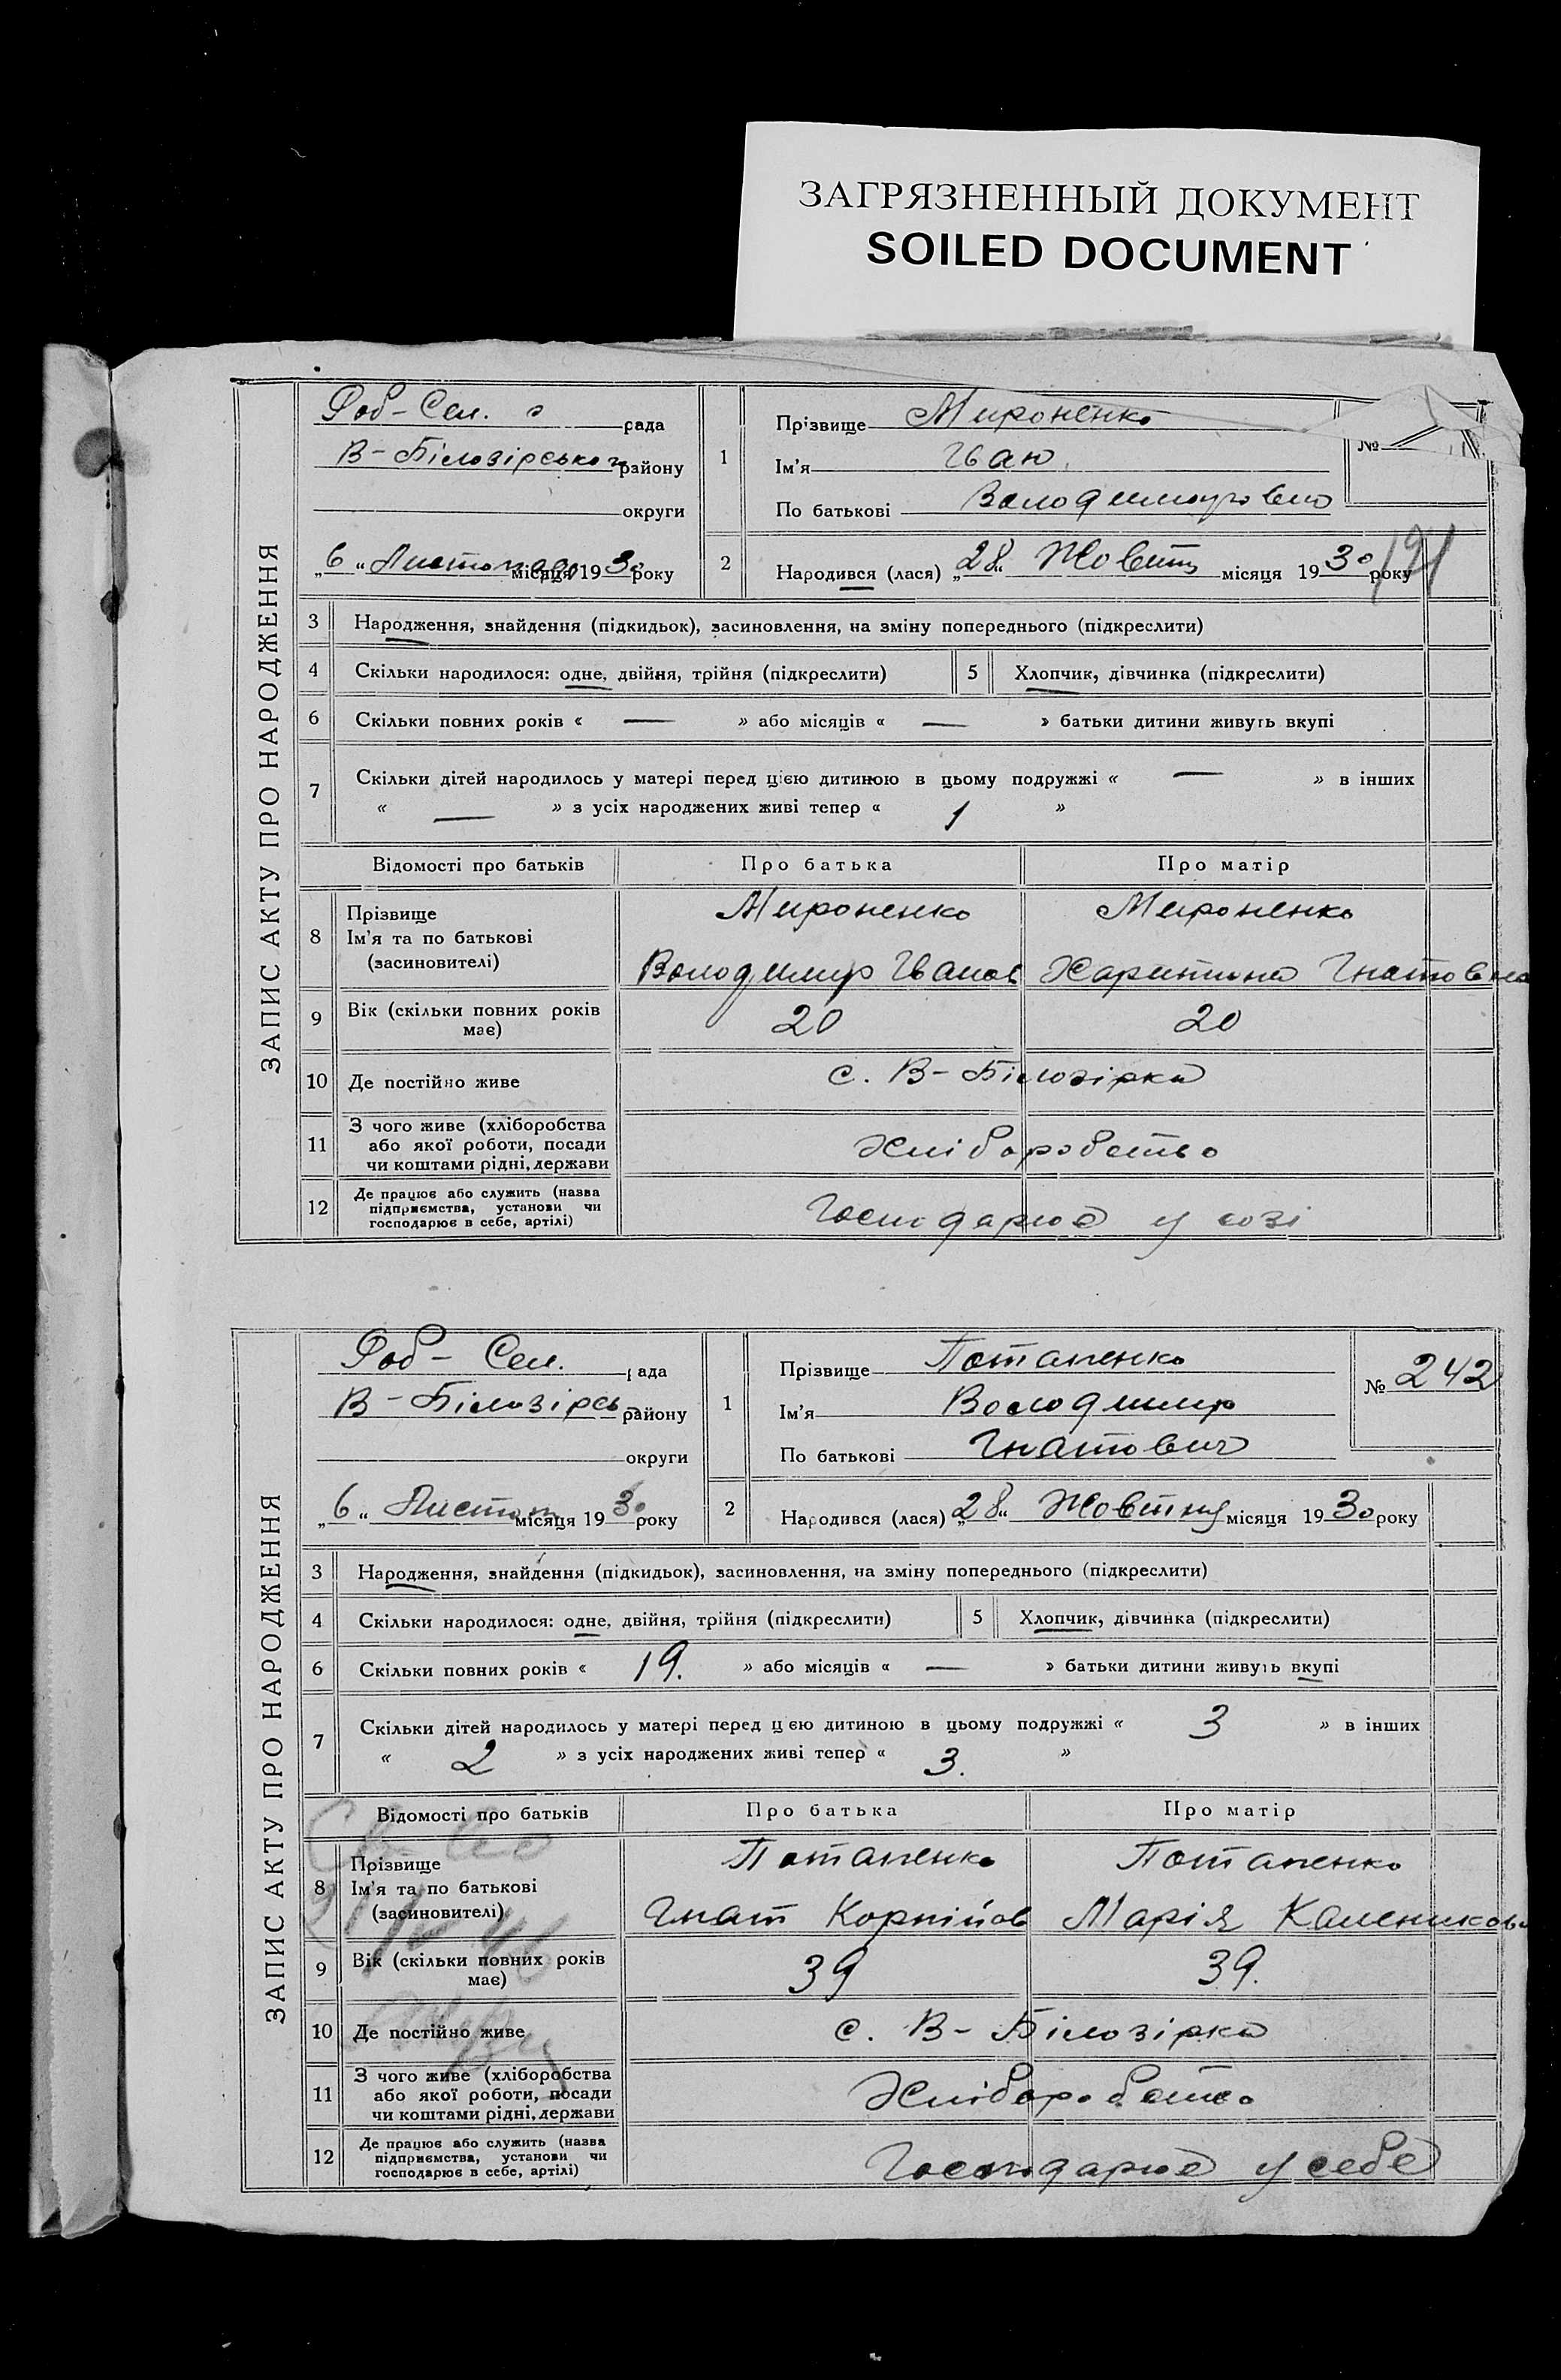 ЗАГРЯЗНЕННЫЙ ДОКУМЕНТ
SOILED DOCUMENT
ЗАПИС АКТУ ПРО НАРОДЖЕННЯ
Роб-Сел. рада
В-Білозірського району
округи
„6“ Листопада місяця 1930 року
1
Прізвище Мироненко
Ім'я Іван
По батькові Володимирович
№
2
Народився (лася) „28“ Жовтн місяця 1930 року
191
3 Народження, знайдення (підкидьок), засиновлення, на зміну попереднього (підкреслити)
4 Скільки народилося: одне, двійня, трійня (підкреслити) 5 Хлопчик, дівчинка (підкреслити)
6 Скільки повних років « — » або місяців « — » батьки дитини живуть вкупі
7 Скільки дітей народилось у матері перед цією дитиною в цьому подружжі « — » в інших
« — » з усіх народжених живі тепер « 1 »
Відомості про батьків Про батька Про матір
8 Прізвище Мироненко Мироненко
Ім'я та по батькові
(засиновителі) Володимир Іванов Харитина Гнатовна
9 Вік (скільки повних років має) 20 20
10 Де постійно живе с. В-Білозірка
11 З чого живе (хліборобства
або якої роботи, посади Хліборобство
чи коштами рідні, держави
12 Де працює або служить (назва
підприємства, установи чи Господарює у созі
господарює в себе, артілі)
ЗАПИС АКТУ ПРО НАРОДЖЕННЯ
Роб- Сел. рада
В-Білозірсь району
округи
„6“ Листоп місяця 1930 року
1
Прізвище Потапенко
Ім'я Володимир
По батькові Гнатович
№ 242
2
Народився (лася) „28“ Жовтня місяця 1930 року
3 Народження, знайдення (підкидьок), засиновлення, на зміну попереднього (підкреслити)
4 Скільки народилося: одне, двійня, трійня (підкреслити) 5 Хлопчик, дівчинка (підкреслити)
6 Скільки повних років « 19. » або місяців « — » батьки дитини живуть вкупі
7 Скільки дітей народилось у матері перед цією дитиною в цьому подружжі « 3 » в інших
« 2 » з усіх народжених живі тепер « 3. »
Відомості про батьків Про батька Про матір
8 Прізвище Потапенко Потапенко
Ім'я та по батькові
(засиновителі) Гнат Корнійов Марія Каленикова
9 Вік (скільки повних років має) 39 39.
10 Де постійно живе с. В-Білозірка
11 З чого живе (хліборобства
або якої роботи, посади Хліборобство
чи коштами рідні, держави
12 Де працює або служить (назва
підприємства, установи чи Господарює у себе
господарює в себе, артілі)